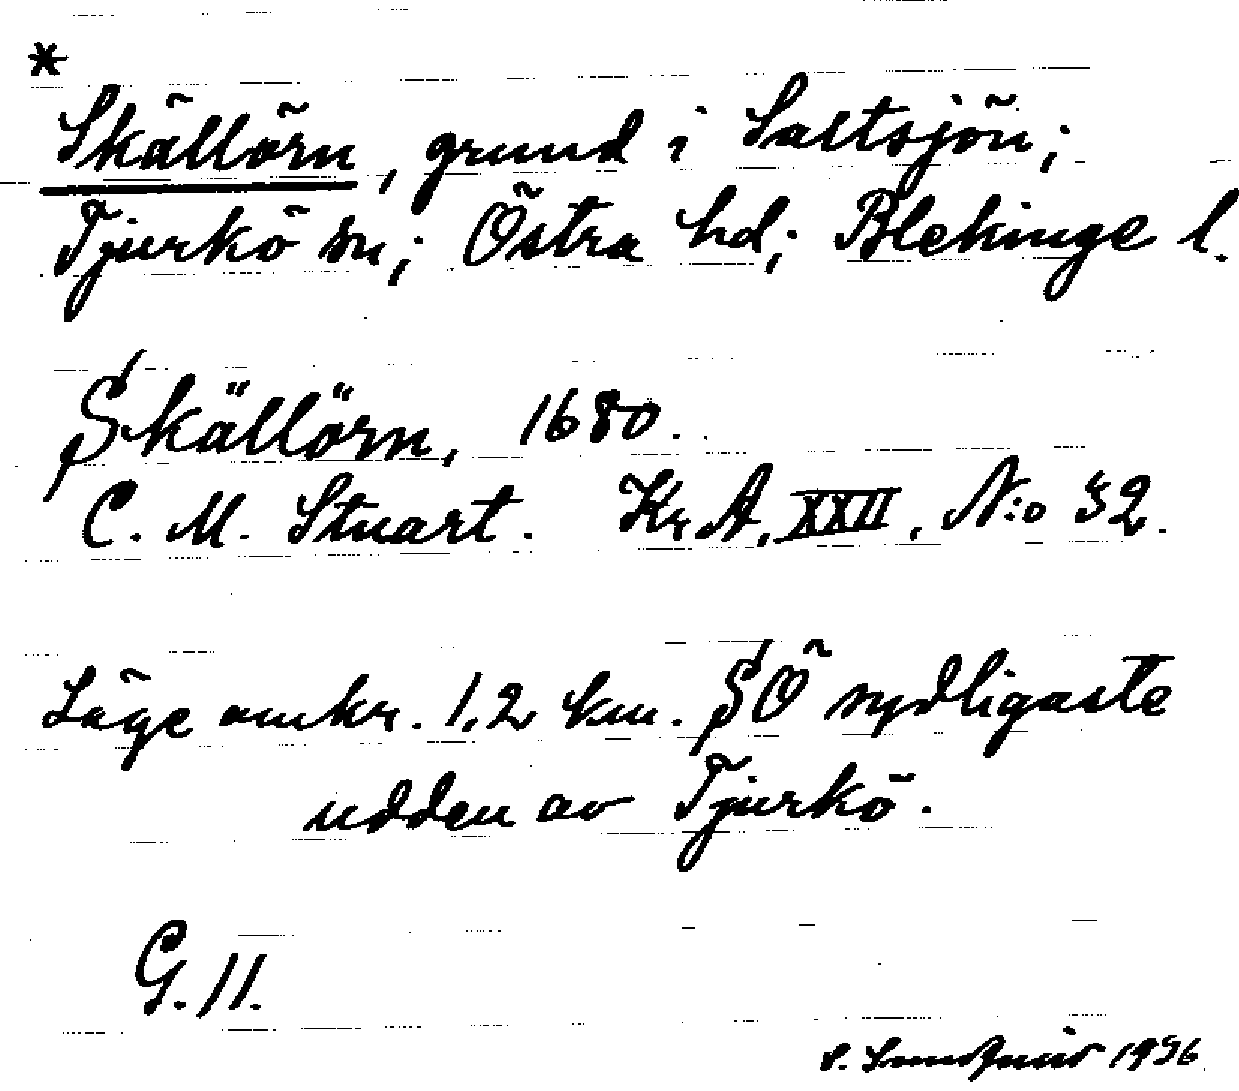 *
Skällörn, grund i Saltsjön;
Tjurkö sn; Östra hd; Blekinge l.
Skällörn, 1680.
C. M. Stuart. Kr A, XXII, N:o 32.
Läge omkr. 1,2 km. SÖ sydligaste
udden av Tjurkö.
G. 11.
1956